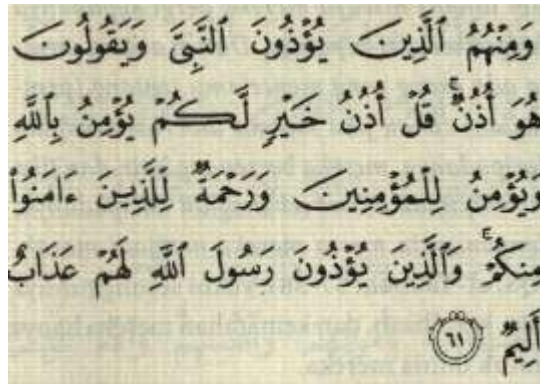 وَمِنْهُمُ ٱلَّذِينَ يُؤْذُونَ ٱلنَّبِىَّ وَيَقُولُونَ
هُوَ أُذُنٌۚ قُلْ أُذُنُ خَيْرٍ لَّكُمْ يُؤْمِنُ بِٱللَّهِ
وَيُؤْمِنُ لِلْمُؤْمِنِينَ وَرَحْمَةٌ لِّلَّذِينَ ءَامَنُوا۟
مِنكُمْۚ وَٱلَّذِينَ يُؤْذُونَ رَسُولَ ٱللَّهِ لَهُمْ عَذَابٌ
أَلِيمٌ ٦١